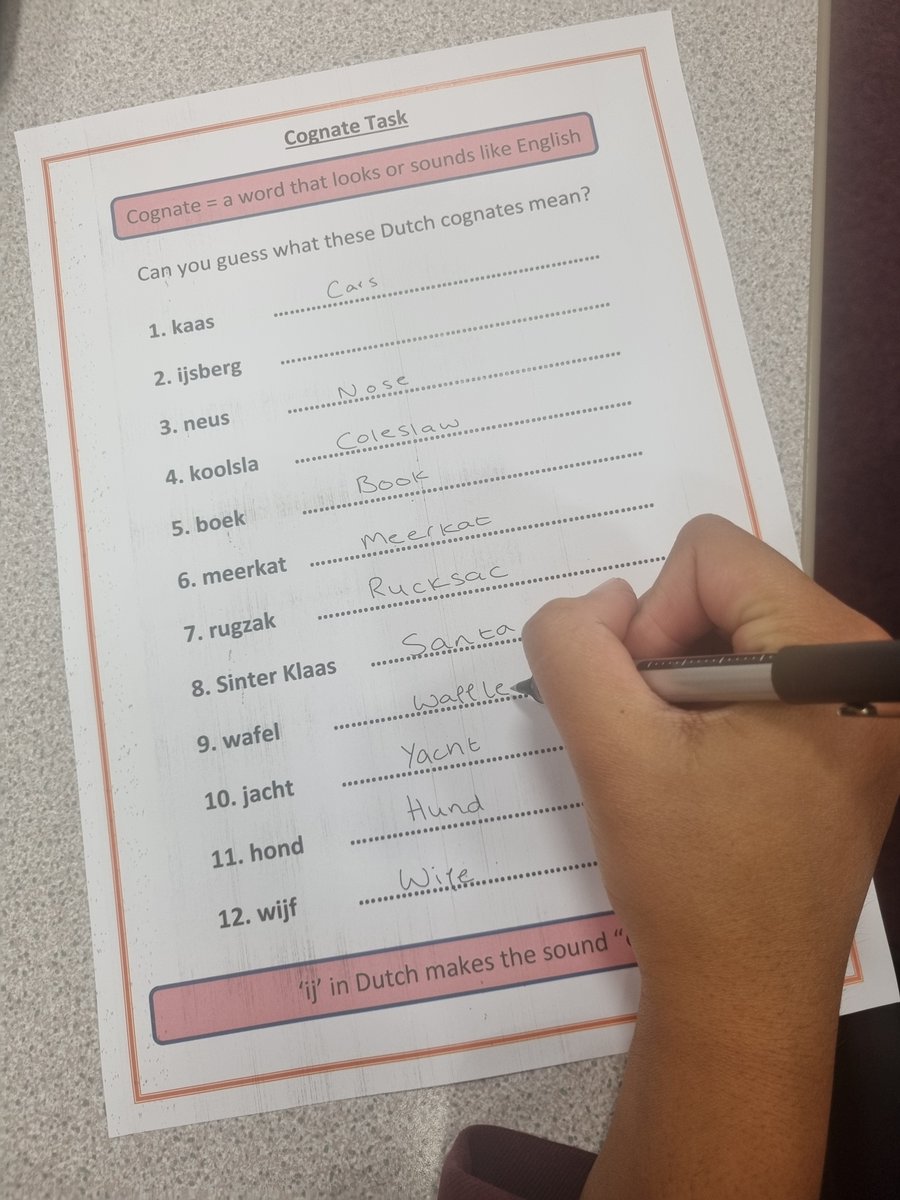 Cognate Task
Cognate = a word that looks or sounds like English
Can you guess what these Dutch cognates mean?
1. kaas Cars
2. ijsberg
3. neus Nose
4. koolsla Coleslaw
5. boek Book
6. meerkat Meerkat
7. rugzak Rucksac
8. Sinter Klaas Santa
9. wafel Waffle
10. jacht Yacht
11. hond Hund
12. wijf Wife
'ij' in Dutch makes the sound "